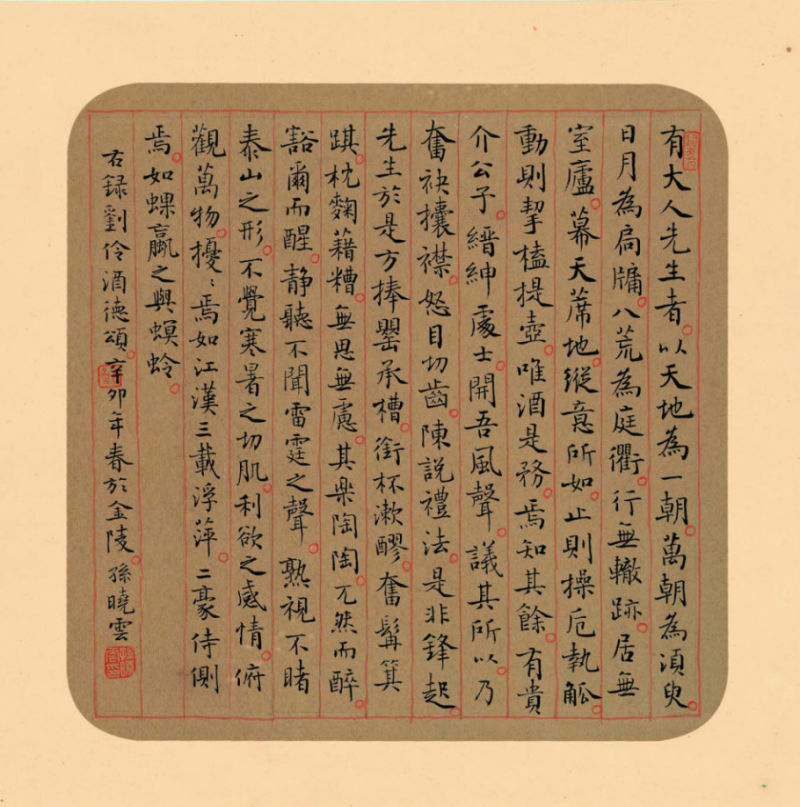 有大人先生者以天地為一朝萬朝為湏臾
日月為扃牖八荒為庭衢行無轍跡居無
室廬幕天蓆地縱意所如止則操卮執觚
動則挈榼提壺唯酒是務焉知其餘有貴
介公子縉紳處士開吾風聲議其所以乃
奮袂攘襟怒目切齒陳說禮法是非鋒起
先生於是方捧罌承槽銜杯漱醪奮髯箕
踑枕麴藉糟無思無慮其樂陶陶兀然而醉
豁爾而醒静聽不聞雷霆之聲熟視不睹
泰山之形不覺寒暑之切肌利欲之感情俯
觀萬物擾〻焉如江漢三載浮萍二豪侍側
焉如蜾蠃之與螟蛉
右録劉伶酒德頌辛卯年春於金陵孫曉雲